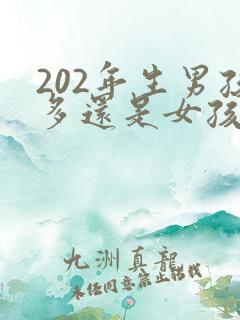 202年生男孩
多還是女孩
九洲真龍
未経同意禁止轉載